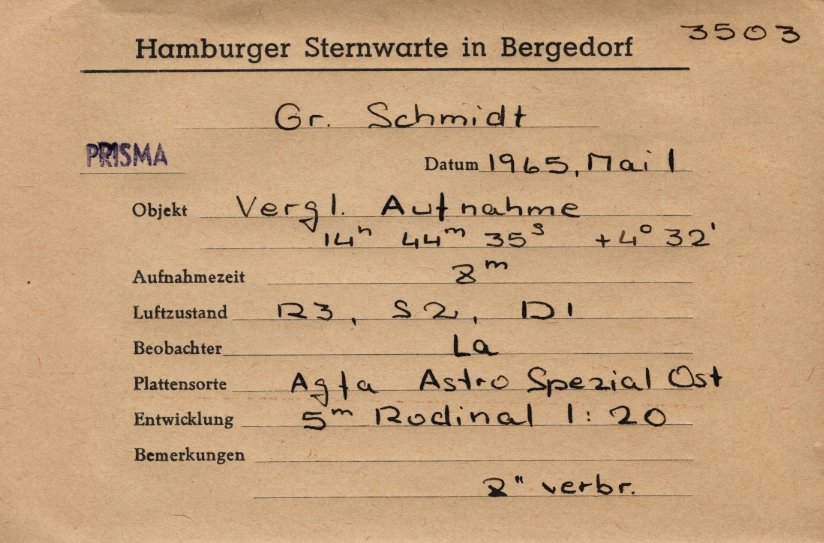 3503
Hamburger Sternwarte in Bergedorf
Gr. Schmidt
PRISMA
Datum 1965, Mai 1
Objekt Vergl. Aufnahme
14h 44m 35s +4° 32'
Aufnahmezeit 8m
Luftzustand R3, S2, D1
Beobachter La
Plattensorte Agfa Astro Spezial Ost
Entwicklung 5m Rodinal 1:20
Bemerkungen
8" verbr.